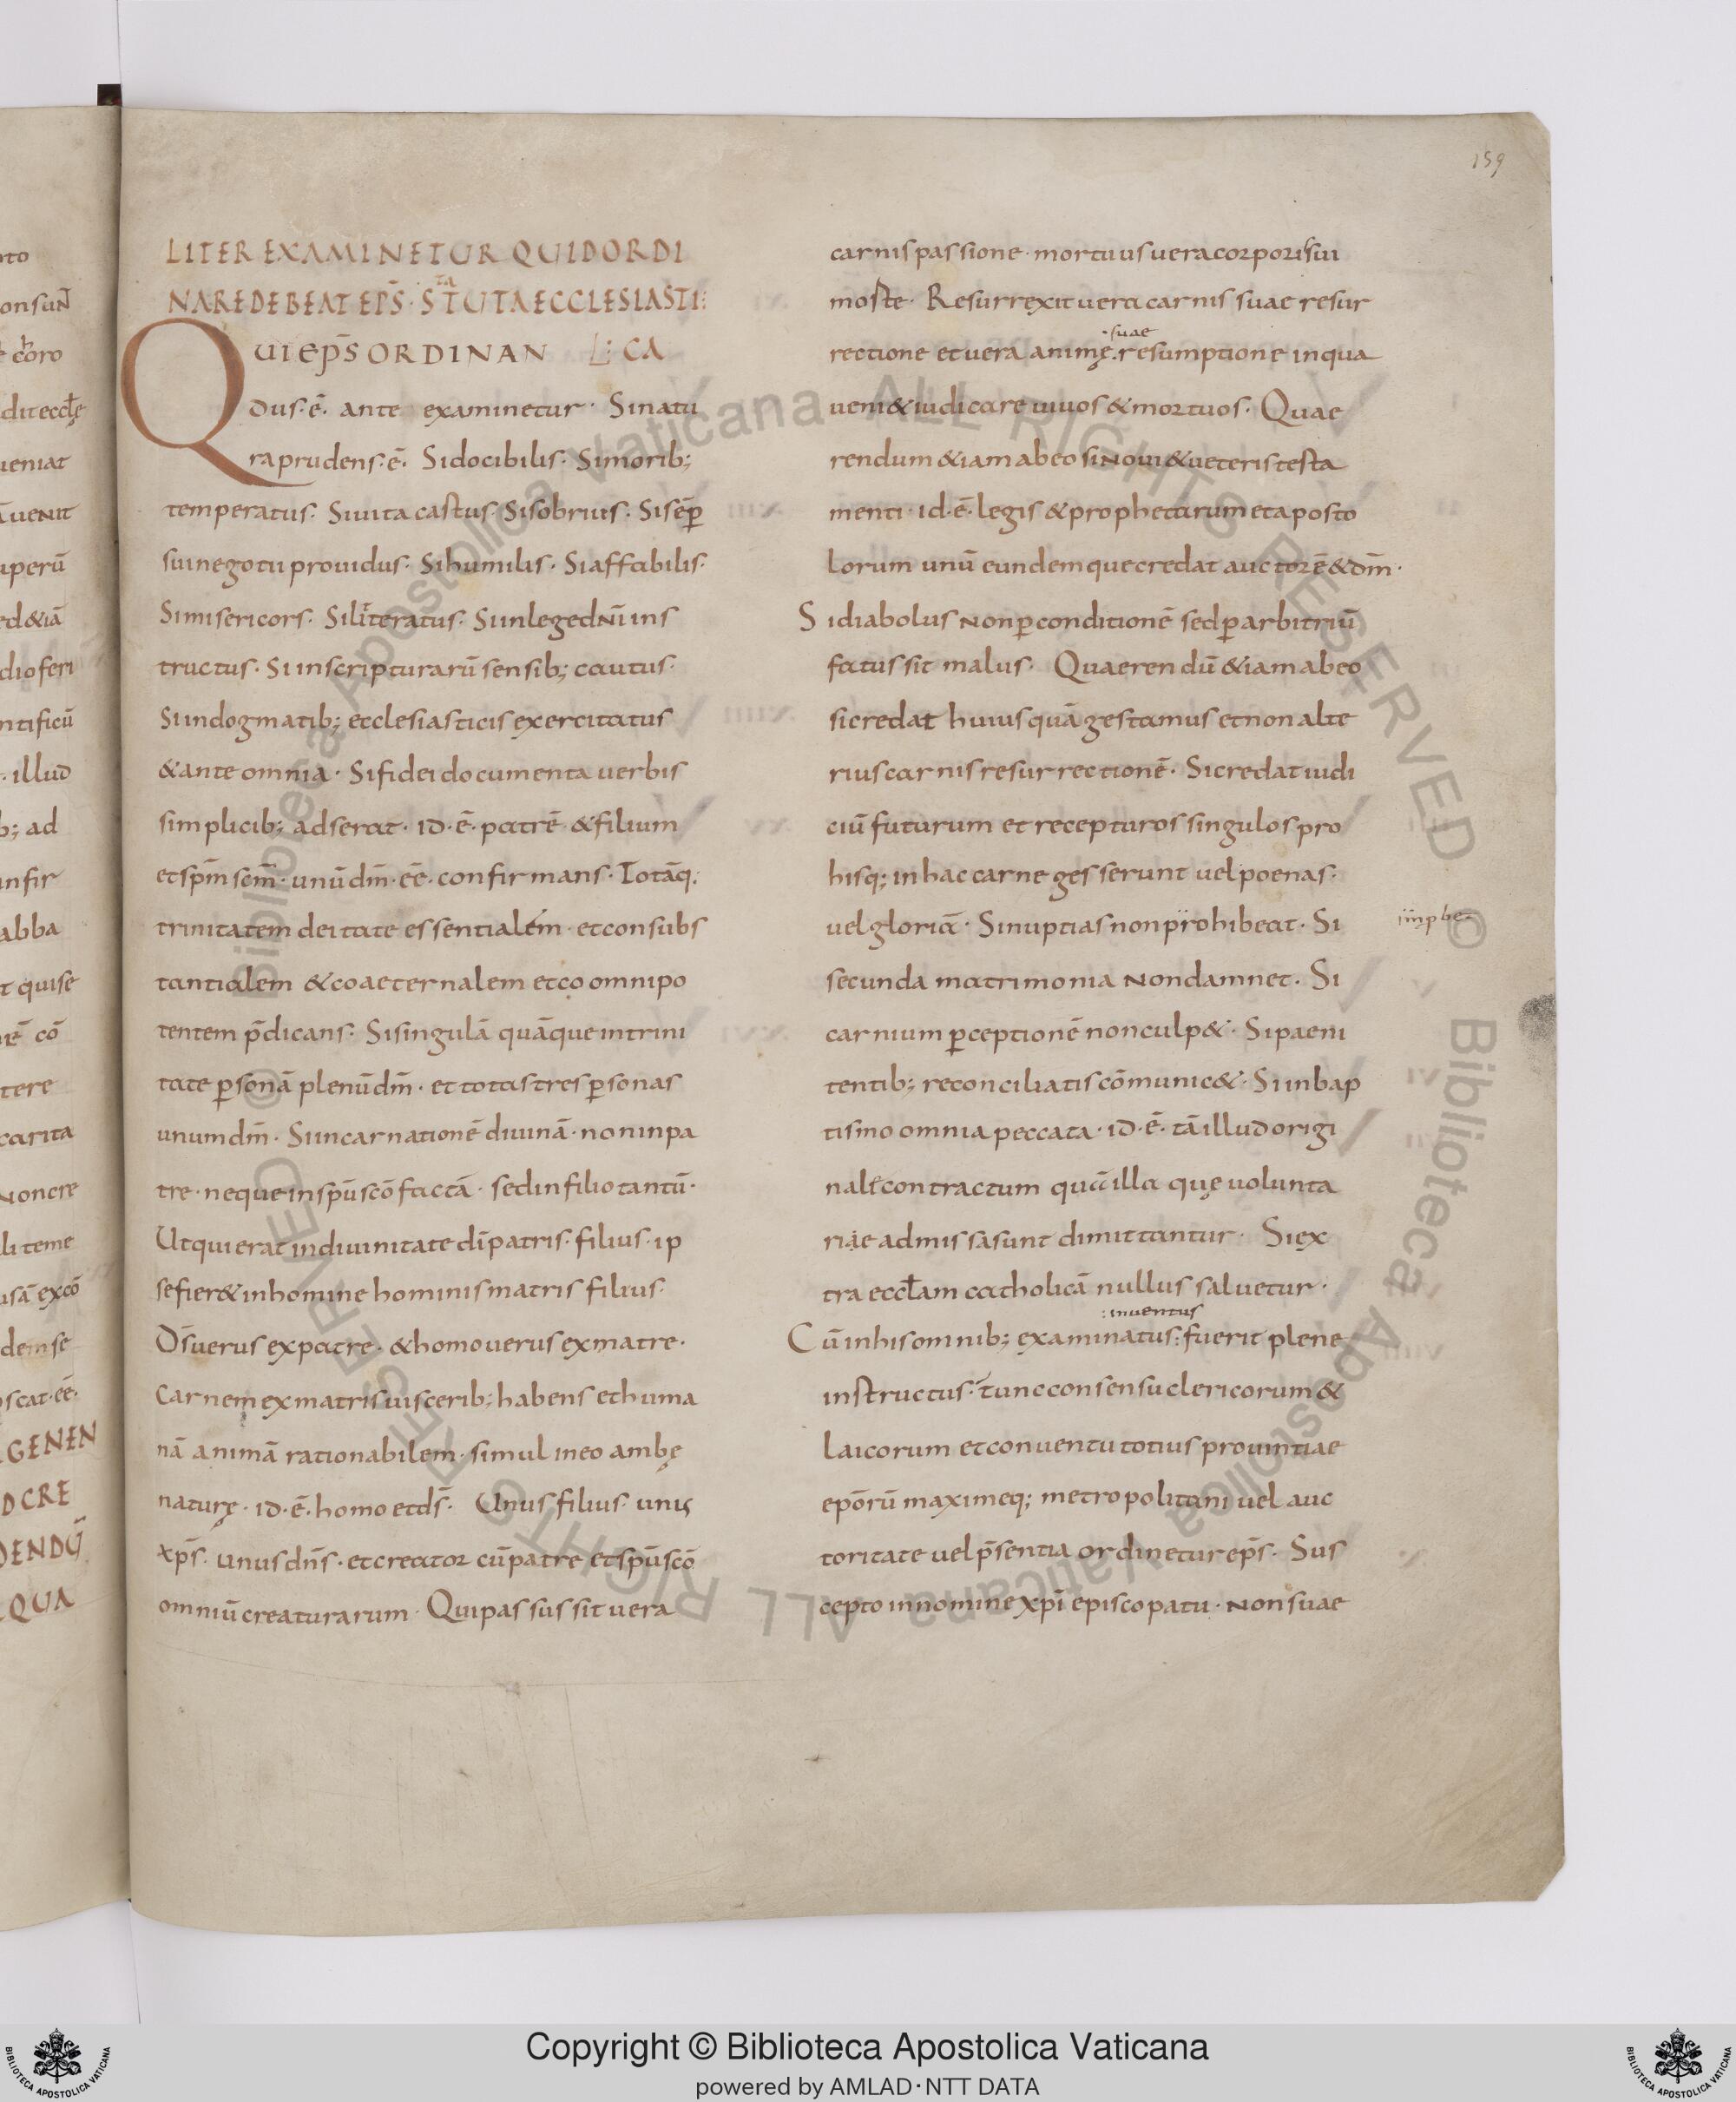 159
LITER EXAMINETUR QUID ORDI
NARE DEBEAT EPS̄· STATUTA ECCLESIASTI:
QUI EPS̄ ORDINAN L: CA
dus·ē· ante examinetur· Si natu
ra prudens·ē· Si docibilis· Si morib;
temperatus· Si uita castus· Si sobrius· Si sēp̄
sui negotii prouidus· Si humilis· Si affabilis·
Si misericors· Si litteratus· Si in lege dn̄i ins
tructus· Si in scripturarū sensib; cautus·
Si in dogmatib; ecclesiasticis exercitatus
& ante omnia· Si fidei documenta uerbis
simplicib; adserat· id·ē· patrē & filium
et sp̄m sc̄m· unū dm̄·ēē· confirmans· Totāq;
trinitatem deitate essentialem· et consubs
tantialem & coaeternalem et co omnipo
tentem p̄dicans· Si singulā quāque in trini
tate p̱sonā plenū dm̄· et totas tres p̱sonas
unum dm̄· Si incarnationē diuinā· non in pa
tre· neque in sp̄u sc̄o factā· sed in filio tantū·
Ut qui erat in diuinitate dī patris· filius· ip
se fier& in homine hominis matris filius·
Ds̄ uerus ex patre· & homo uerus ex matre·
Carnem ex matris uiscerib; habens et huma
nā animā rationabilem· simul in eo ambę
naturę· id·ē· homo et ds̄· Unus filius· unus
xp̄s· unus dn̄s· et creator cū patre et sp̄u sc̄o
omniū creaturarum· Qui passus sit uera
carnis passione· mortuus uera corporis sui
morte· Resurrexit uera carnis suae resur
·suae
rectione et uera animę· resumptione in qua
ueni& iudicare uiuos & mortuos· Quae
rendum &iam ab eo si noui & ueteris testa
menti· id·ē· legis & prophetarum et aposto
lorum unū eundemque credat auctorē & dm̄·
Si diabolus non p̱ conditionē sed p̱ arbitriū
fatus sit malus· Quaerendū &iam ab eo
si credat huius quā gestamus et non alte
rius carnis resurrectionē· Si credat iudi
ciū futurum et recepturos singulos pro
hisq; in hac carne gesserunt uel poenas·
uel gloriā· Si nuptias non prohibeat· Si
secunda matrimonia non damnet· Si
carnium p̱ceptionē non culp&· Si paeni
tentib; reconciliatis cōmunic&· Si in bap
tismo omnia peccata· id·ē· tā illud origi
nale contractum quā illa quę uolunta
riae admissa sunt dimittantur· Si ex
tra eccl̄am catholicā nullus saluetur·
:inuentus
Cū in his omnib; examinatus: fuerit plene
instructus· tunc consensu clericorum &
laicorum et conuentu totius prouintiae
epōrū maximeq; metropolitani uel auc
toritate uel p̄sentia ordinetur ep̄s· Sus
cepto in nomine xp̄i episcopatu· non suae
Copyright © Biblioteca Apostolica Vaticana
powered by AMLAD·NTT DATA